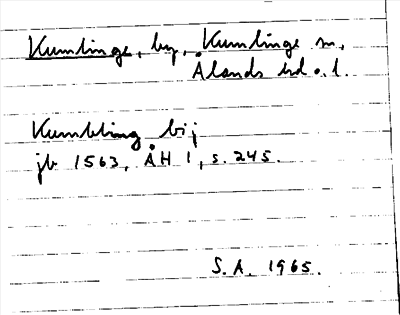 Kumlinge, by, Kumlinge sn,
Ålands hd o. l.
Kumbling bij
jb 1563, ÅH 1, s. 245.
S.A. 1965.